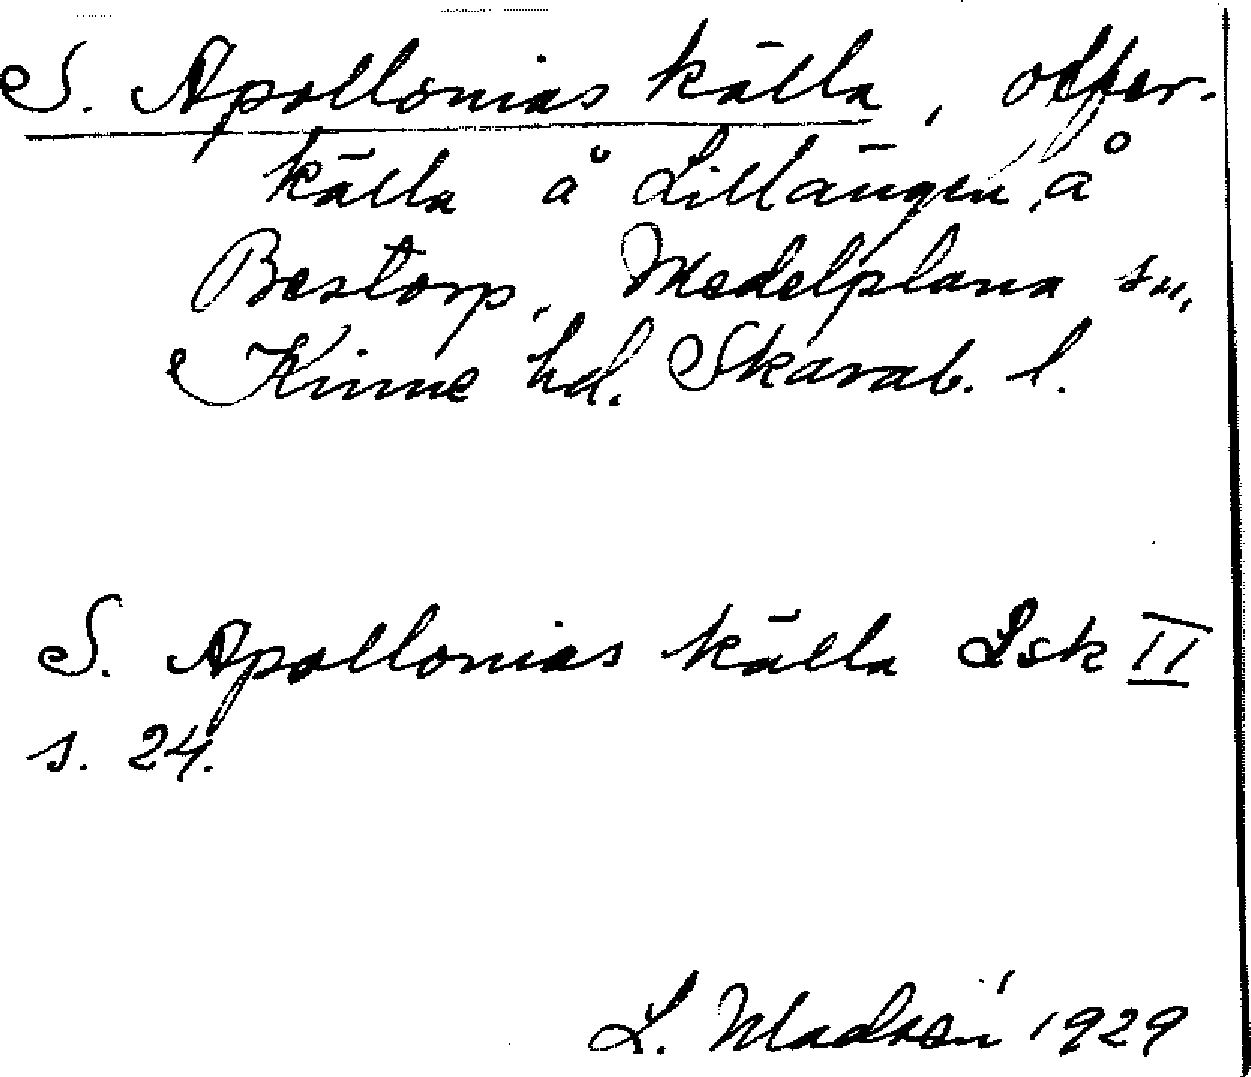 S. Apollonias källa, offer-
källa å Lillängen, å
Bestorp, Medelplana sn,
Kinne hd. Skarab. l.
S. Apollonias källa Lsk II
s. 24.
L. Madsén 1929